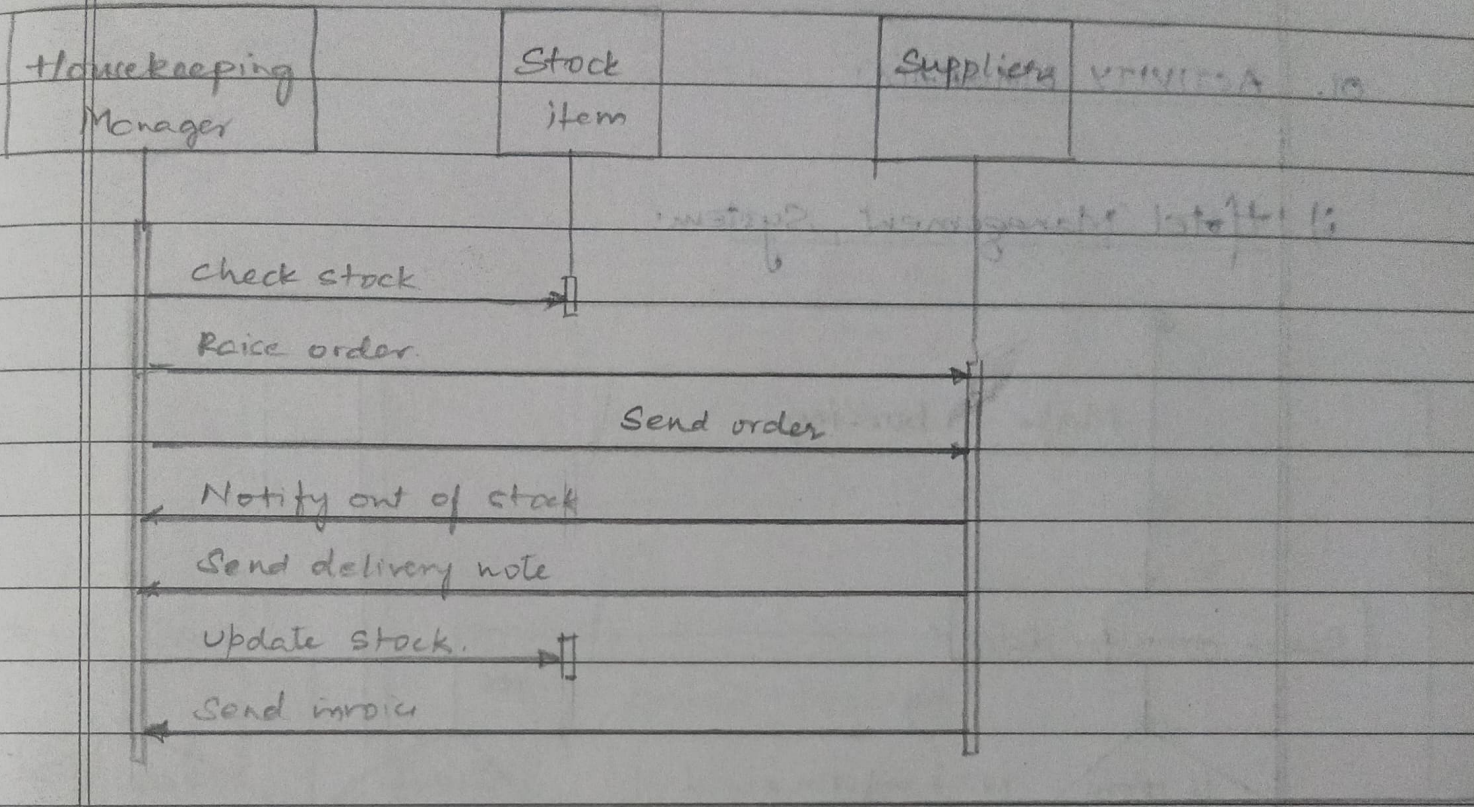 Housekeeping
Manager
Stock
item
Suppliers
check stock
Raise order.
Send order
Notify out of stock
Send delivery note
Update stock.
Send invoice